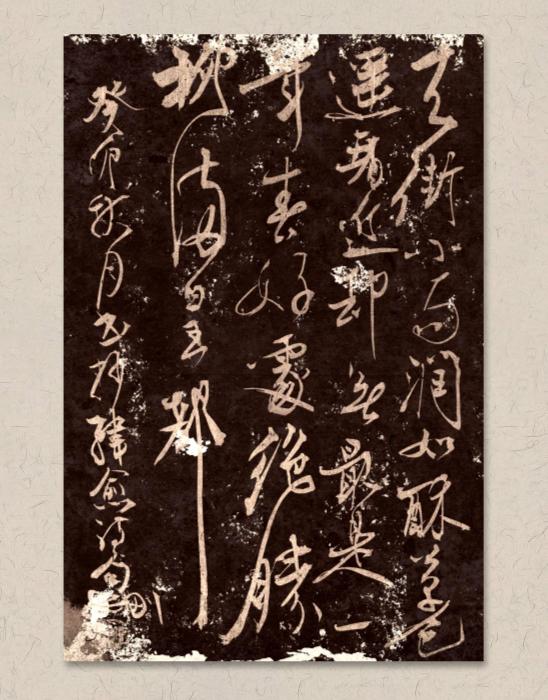 天街小雨潤如酥草色
遥看近却無最是一
年春好處絕勝
柳滿皇都
癸卯秋月书抄韓愈诗句